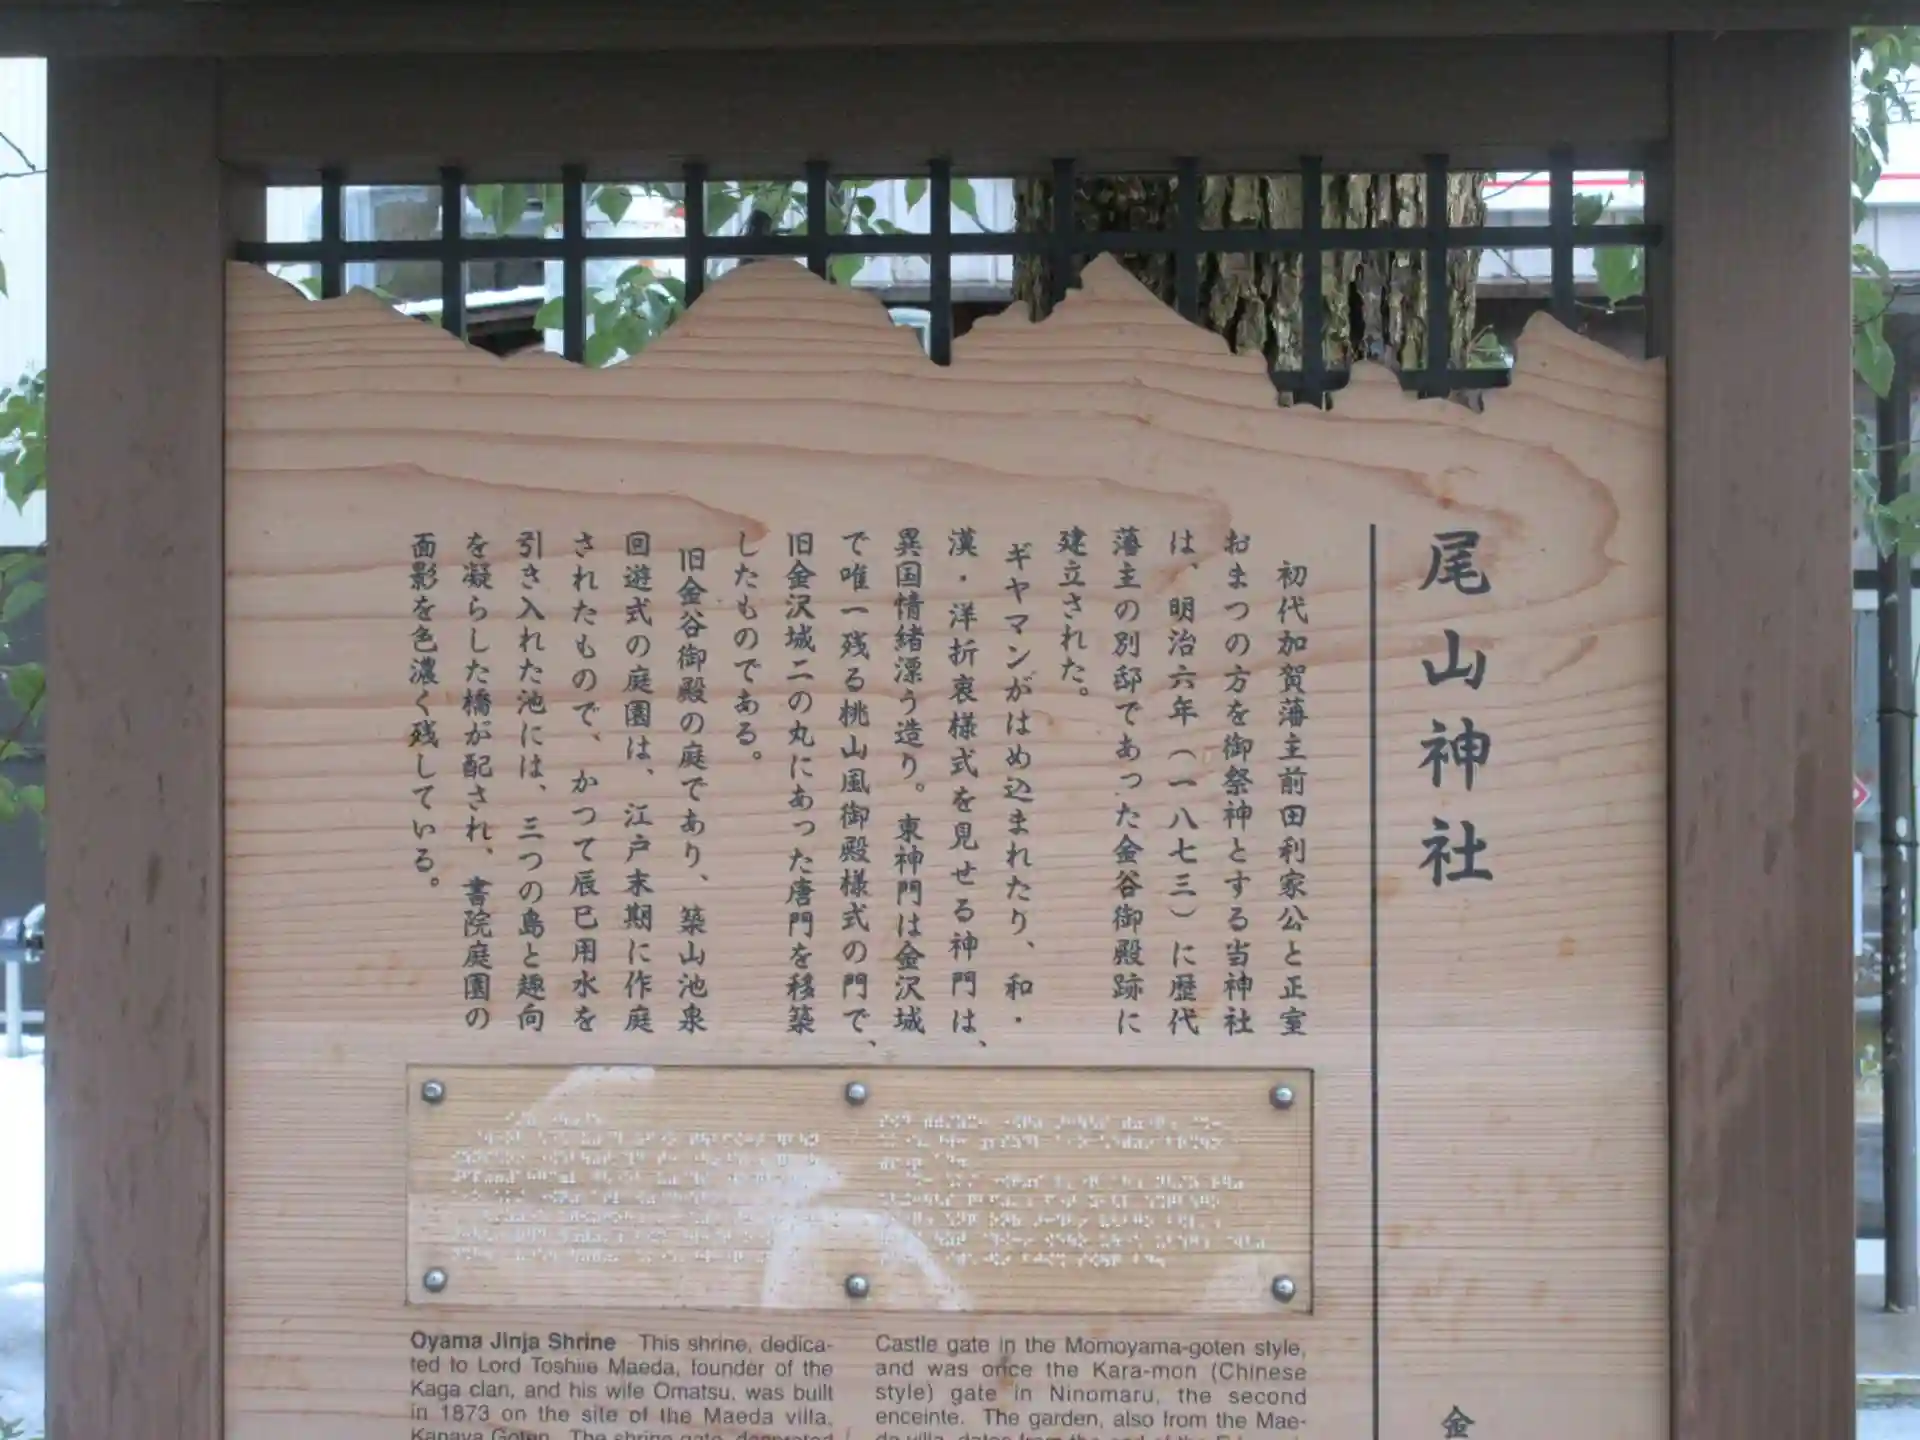 尾山神社
初代加賀藩主前田利家公と正室
おまつの方を御祭神とする当神社
は、明治六年（一八七三）に歴代
藩主の別邸であった金谷御殿跡に
建立された。
ギヤマンがはめ込まれたり、和・
漢・洋折衷様式を見せる神門は、
異国情緒漂う造り。東神門は金沢城
で唯一残る桃山風御殿様式の門で、
旧金沢城二の丸にあった唐門を移築
したものである。
旧金谷御殿の庭であり、築山池泉
回遊式の庭園は、江戸末期に作庭
されたもので、かつて辰巳用水を
引き入れた池には、三つの島と趣向
を凝らした橋が配され、書院庭園の
面影を色濃く残している。
Oyama Jinja Shrine This shrine, dedica-
ted to Lord Toshiie Maeda, founder of the
Kaga clan, and his wife Omatsu, was built
in 1873 on the site of the Maeda villa,
Kanaya Goten. The shrine gate, decorated
Castle gate in the Momoyama-goten style,
and was once the Kara-mon (Chinese
style) gate in Ninomaru, the second
enceinte. The garden, also from the Mae-
da villa, dates from the end of the
金